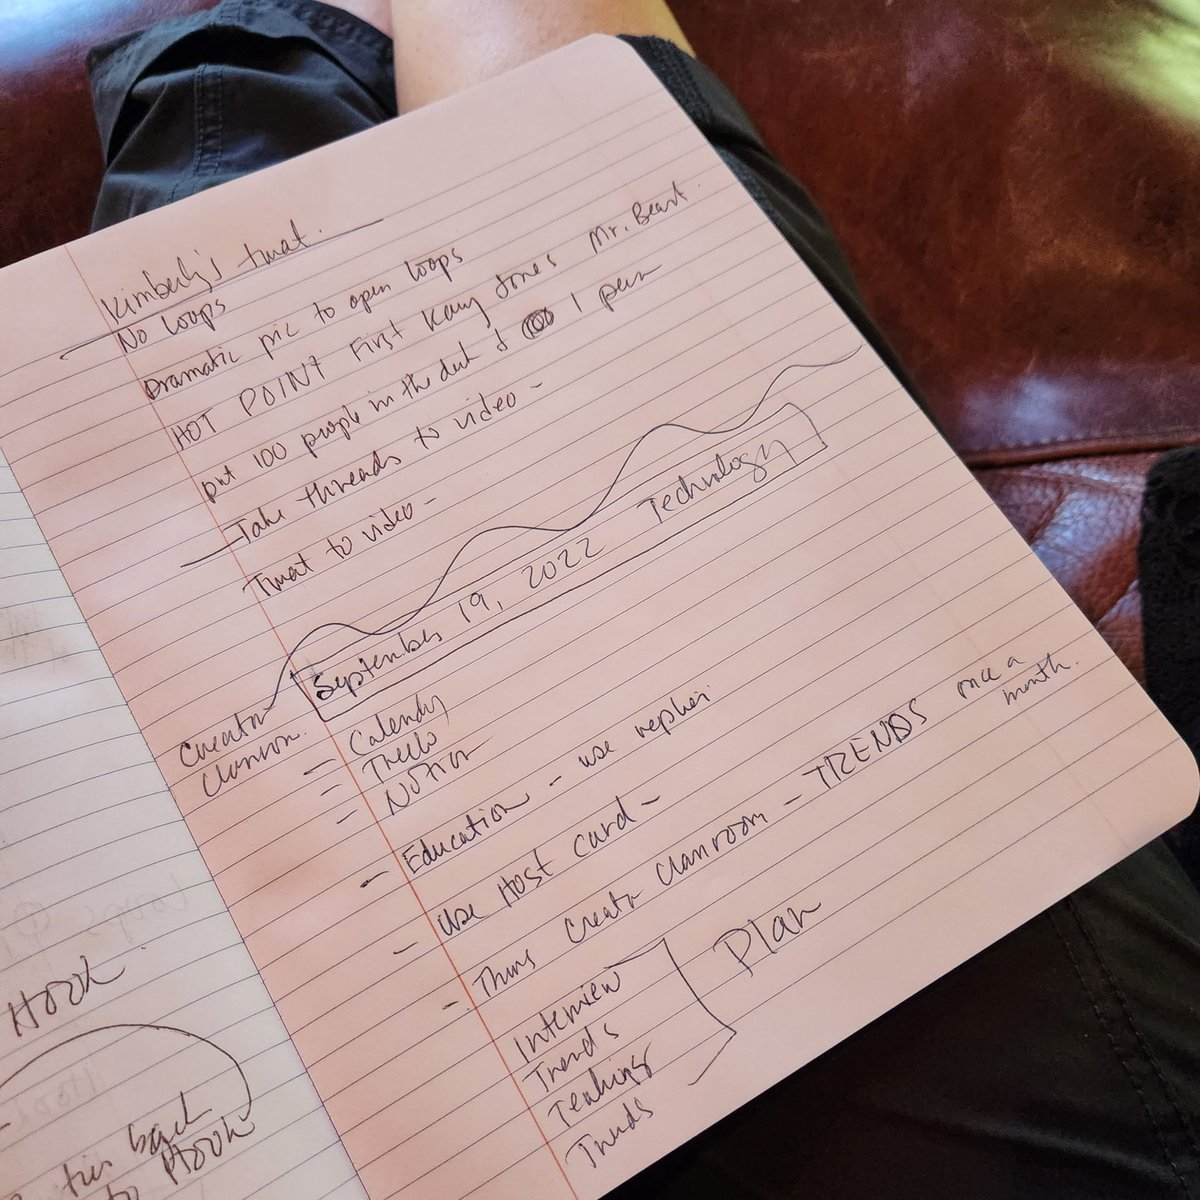 Kimberly's tweat.
No Loops
Dramatic pic to open loops
HOT POINT First Kasey Jones Mr. Beast
put 100 people in the dark & 1 person
Take threads to video -
Tweat to video -
September 19, 2022 Technology
Creator
Classroom.
- Calendly
- Trello
- Notion
- Education - use
- Use Host Card -
- Thurs Creator Classroom - TRENDS once a
month.
Interview
Trends
Teachings
Trends
Plan
Hook
ties back
to Hook